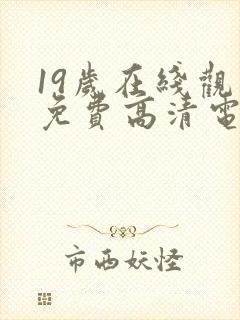 19歲在綫觀
免費高清電
市西妖怪